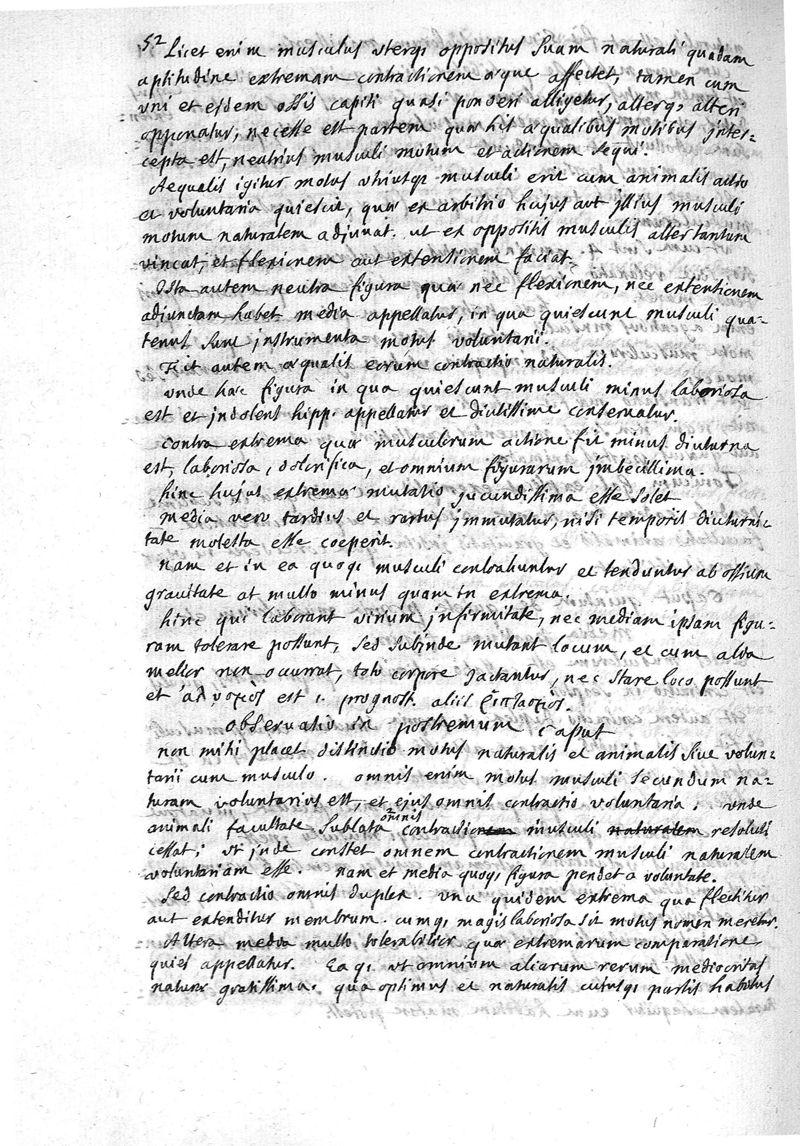 52 Licet enim musculus uterq; oppositus suam naturali quadam
aptitudine extremam contractionem æque affectet, tamen cum
uni et eidem ossis capiti quasi ponderi alligetur, alterq; alteri
opponatur, necesse est partem quæ his æqualibus motibus inter-
cepta est, neutrius musculi motum et actionem sequi.
Aequalis igitur motus utriusq; musculi erit cum animalis actio
et voluntaria quiescit, quæ ex arbitrio hujus aut illius musculi
motum naturalem adjuvat. ut ex oppositis musculis alter tantum
vincat, et flexionem aut extentionem faciat.
Ista autem neutra figura quæ nec flexionem, nec extentionem
adjunctam habet media appellatur, in qua quiescunt musculi qua-
tenus sunt instrumenta motus voluntarii.
Fit autem æqualis eorum contractio naturalis.
unde hæc figura in qua quiescunt musculi minus laboriosa
est et indolens hipp. appellatur et diutissime conservatur
contra extrema quæ musculorum actione fit minus diuturna
est, laboriosa, dolorifica, et omnium figurarum imbecillima.
hinc hujus extremæ mutatio jucundissima esse solet
media vero tardius et rarius immutatur, nisi temporis diuturni-
tate molesta esse coeperit.
nam et in ea quoq; musculi contrahuntur et tenduntur ab ossium
gravitate at multo minus quam in extrema.
hinc qui laborant virium infirmitate, nec mediam ipsam figu-
ram tolerare possunt, sed subinde mutant locum, et cum alia
melior non occurrat, toto corpore jactantur, nec stare loco possunt
et est prognost. aliis
observatio in postremum caput
non mihi placet distinctio motus naturalis et animalis sive volun-
tarii cum musculo. omnis enim motus musculi secundum na-
turam voluntarius est, et ejus omnis contractio voluntaria. unde
animali facultate sublata omnis contractio musculi naturalem resoluti
cessat; ut inde constet omnem contractionem musculi naturalem
voluntariam esse. nam et media quoq; figura pendet a voluntate.
Sed contractio omnis duplex. una quidem extrema qua flectitur
aut extenditur membrum. cumq; magis laboriosa sit motus nomen meretur.
Altera media multo tolerabilior quæ extremarum comparatione
quies appellatur. Ea q; ut omnium aliarum rerum mediocritas
naturæ gratissima. qua optimus et naturalis cujusq; partis habitus